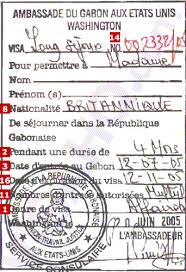 AMBASSADE DU GABON AUX ETATS UNIS
WASHINGTON
14
VISA Long Séjour NO. 002332/05
Pour permettre à Madame
Nom
Prénom (s)
8 Nationalité BRITANNIQUE
De séjourner dans la République
Gabonaise
2 Pendant une durée de 4 Mois
3 Date d'entrée au Gabon 12-07-05
16 visa 12-11-05
11 Nombres d'entrées autorisées
1 Genre de visa
Washington le 20 JUIN 2005
L'AMBASSADEUR
AUX ETATS-UNIS
SERVICE CONSULAIRE